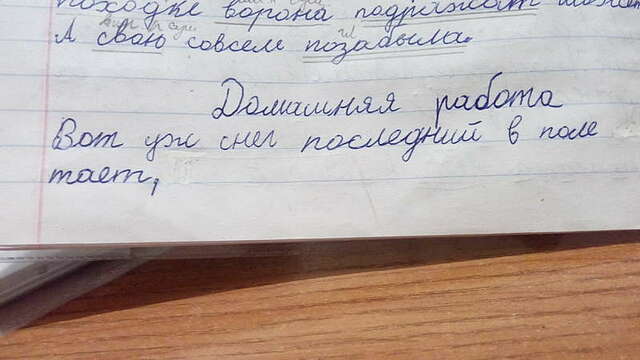 походке ворона подражат
А свою совсем позабыла.
Домашняя работа
Вот уж снег последний в поле
тает,